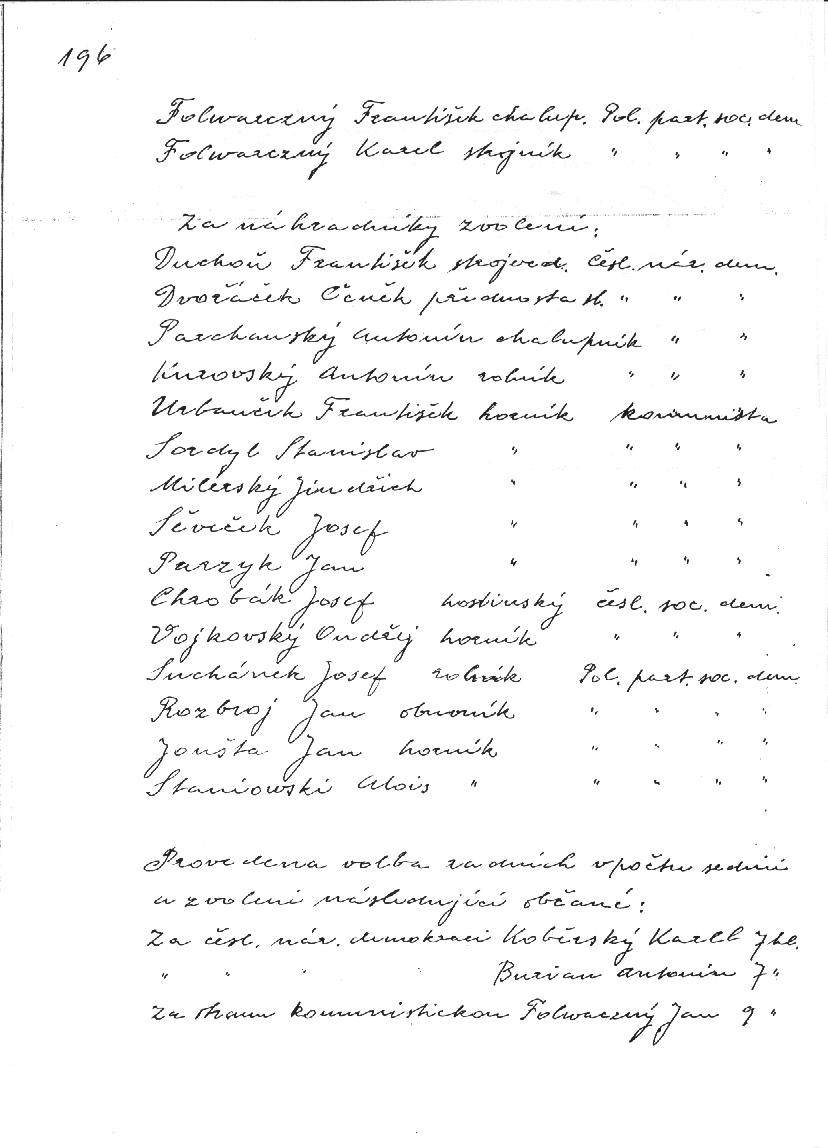 196
Folwarczný František chalup. Pol. part. soc. dem
Folwarczný Karel strojník " " " "
Za náhradníky zvoleni:
Duchoň František strojved. čésl. nár. dem.
Dvořáček Čeněk přednosta st. " " "
Parchanský Antonín chalupník " "
Kurovský Antonín rolník " " "
Urbančík František horník komunista
Sordyl Stanislav " " " "
Milerský Jindřich " " " "
Ševeček Josef " " " "
Parzyk Jan " " " "
Chrobák Josef hostinský čésl. soc. dem.
Vojkovský Ondřej horník " " "
Suchánek Josef rolník Pol. part. soc. dem.
Rozbroj Jan obuvník " " " "
Jonšta Jan horník " " " "
Staniowski Alois " " " " "
Provedena volba radních v počtu sedmi
a zvoleni následující občané:
Za čésl. nár. demokraci Koběrský Karel 7 hl.
" " " " Burian Antonín 7 "
Za stranu komunistickou Folwaczný Jan 9 "